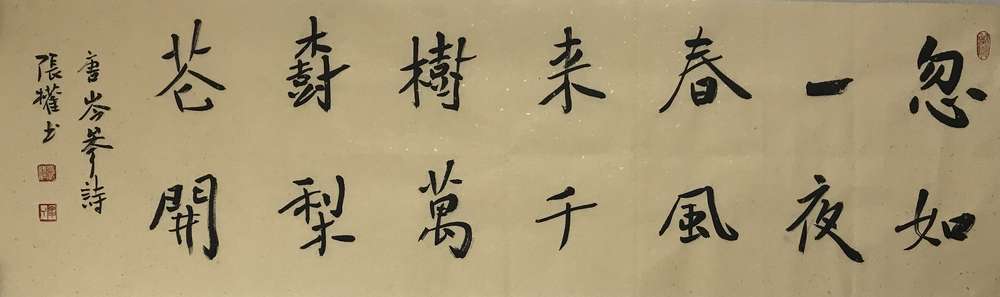 忽如
一夜
春風
来千
樹萬
樹梨
花開
唐岑參詩
張權书